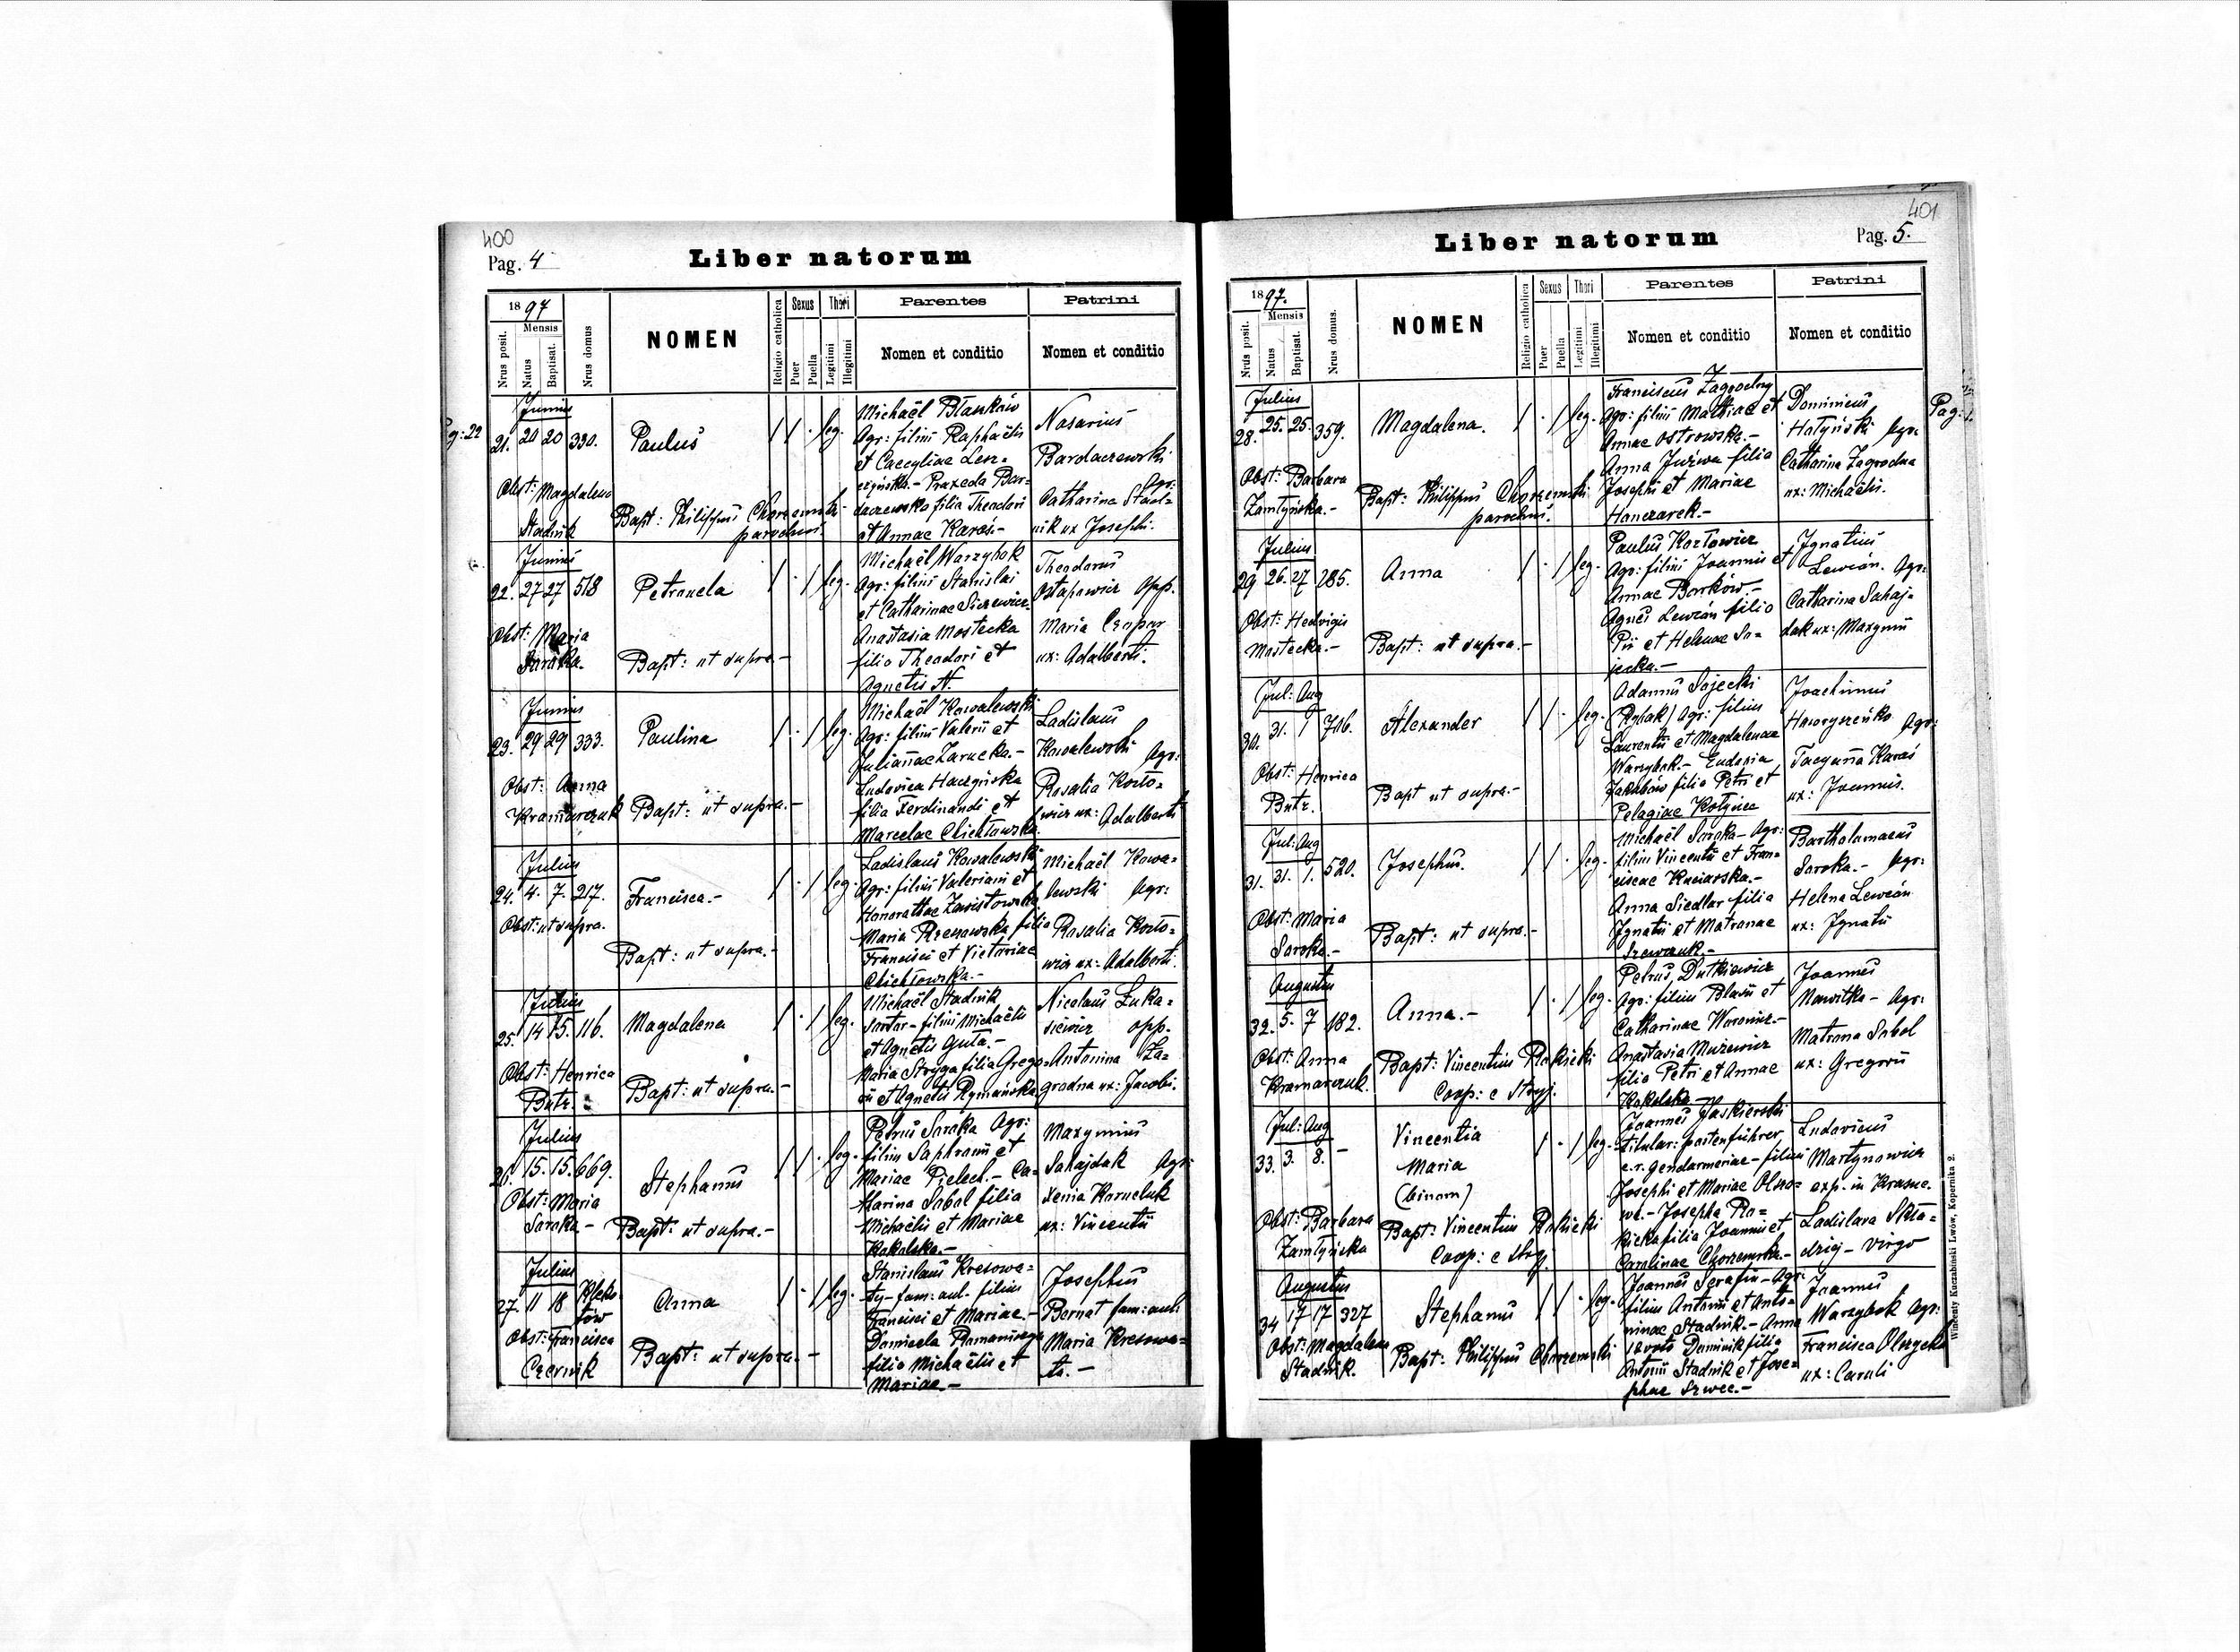 400
Pag. 4
Liber natorum
1897
Nrus posit.
Mensis
Natus
Baptisat.
Nrus domus
NOMEN
Religio catholica
Sexus
Puer
Puella
Thori
Legitimi
Illegitimi
Parentes
Nomen et conditio
Patrini
Nomen et conditio
Pg: 22
Junius
21. 20 20 330.
Paulus
/ / · leg.
Obst: Magdalena
Stadnik
Bapt: Philippus Chorzemski
parochus.
Michaël Błaszków
Agr: filius Raphaëlis
et Caecyliae Lesz=
czyńska.- Praxeda Bar=
daczewska filia Theodori
et Annae Karaś-
Nasarius
Bardaczewski
Agr:
Catharina Stad=
nik ux Josephi.
Junius
22. 27 27 518
Petronela
/ · / leg.
Obst: Maria
Soroka.
Bapt: ut supra.-
Michaël Warzybok
Agr: filius Stanislai
et Catharinae
Anastasia Mostecka
filia Theodori et
Agnetis N.
Theodorus
Ostapowicz opp.
Maria
ux: Adalberti.
Junius
23. 29 29 333.
Paulina
/ · / leg.
Obst: Anna
Kramarczuk
Bapt: ut supra.-
Michaël Kowalewski
Agr: filius Valerii et
Juliannae Zarucka.-
Ludovica Haczyńska
filia Ferdinandi et
Marcelae Clichtowska.
Ladislaus
Kowalewski Agr:
Rosalia Kozło=
wicz ux: Adalberti
Julius
24. 4. 7. 217.
Francisca.-
/ · / leg.
Obst: ut supra.
Bapt: ut supra.-
Ladislaus Kowalewski
Agr: filius Valeriani et
Honorathae Zawistowska
Maria Rzeszowska filia
Francisci et Victoriae
Clichtowska.-
Michaël Kowa=
lewski Agr:
Rosalia Kozło=
wicz ux: Adalberti.
Julius
25. 14 15. 116.
Magdalena
/ · / leg.
Obst: Henrica
Butz.
Bapt: ut supra.-
Michaël Stadnik
Sartor - filius Michaëlis
et Agnetis Guta.-
Maria Stryga filia Grego=
rii et Agnetis Rymańska
Nicolaus Łuka=
siewicz opp.
Antonina Za=
grodna ux: Jacobi.
Julius
26. 15. 15. 669.
Stephanus
/ / · leg.
Obst: Maria
Soroka.-
Bapt: ut supra.-
Petrus Soroka Agr:
filius Saphronii et
Mariae Pielech.- Ca=
tharina Sobol filia
Michaëlis et Mariae
Kokolska.-
Maxymius
Sahajdak Agr:
Xenia Korneluk
ux: Vincentii
Julius
27. 11 18
Anna
/ · / leg.
Obst: Francisca
Czernik
Bapt: ut supra.-
Stanislaus Kresowa=
ty - fam: aul. filius
Francisci et Mariae.-
filia Michaëlis et
Mariae.-
Josephus
Bernat fam: aul:
Maria Kresowa=
ta.-
401
Pag. 5.
Liber natorum
1897.
Nrus posit.
Mensis
Natus
Baptisat.
Nrus domus.
NOMEN
Religio catholica
Sexus
Puer
Puella
Thori
Legitimi
Illegitimi
Parentes
Nomen et conditio
Patrini
Nomen et conditio
Julius
28. 25. 25. 359.
Magdalena.
/ · / leg.
Obst: Barbara
Zamłyńska.-
Bapt: Philippus Chorzemski
parochus.
Franciscus Zagrodny
Agr: filius Mathiae et
Annae Ostrowska.-
Anna Juźwa filia
Josephi et Mariae
Hanczarek.-
Dominicus
Hołyński Agr:
Catharina Zagrodna
ux: Michaëlis.
Pag:
Julius
29 26. 27 285.
Anna
/ · / leg.
Obst: Hedvigis
Mostecka.-
Bapt: ut supra.-
Paulus Kozłowicz
Agr: filius Joannis et
Annae Borków.-
Agnes Lewcán filia
Pii et Helenae Sa=
jecka.-
Ignatius
Lewcán. Agr:
Catharina Sahaj=
dak ux: Maxymii
Jul: Aug
30. 31. 1 716.
Alexander
/ / · leg.
Obst: Henrica
Butz.
Bapt ut supra.-
Adamus Sajecki
(Rybak) Agr: filius
Laurentii et Magdalenae
Warzybok.- Eudoxia
Jakubów filia Petri et
Pelagiae
Joachimus
Haworyszeńko Agr:
Karaś
ux: Joannis.
Jul: Aug
31. 31. 1. 520.
Josephus.
/ / · leg.
Obst: Maria
Soroka.-
Bapt: ut supra.-
Michaël Soroka - Agr:
filius Vincentii et Fran=
ciscae Kuciarska.-
Anna Siedlar filia
Ignatii et Matronae
Szewczuk.-
Bartholomaeus
Soroka.- Agr:
Helena Lewcán
ux: Ignatii
Augustus
32. 5. 7 182.
Anna.-
/ · / leg.
Obst: Anna
Kramarczuk.
Bapt: Vincentius Rokicki
Coop: e Stryj.
Petrus Dutkiewicz
Agr: filius Blasii et
Catharinae Woronicz.-
Anastasia
filia Petri et Annae
Kokolska.-
Joannes
Nowitka - Agr:
Matrona Sobol
ux: Gregorii
Jul: Aug
33. 3. 8. -
Vincentia
Maria
(binom)
/ · / leg.
Obst: Barbara
Zamłyńska
Bapt: Vincentius Rokicki
Coop: e Stryj
Joannes Jaskierski
titular: postenführer
c.r. gendarmeriae - filius
Josephi et Mariae
Josepha Ro=
kicka filia Joannis et
Carolinae Chorzemska.-
Ludovicus
Martynowicz
exp. in Krasne.
Ladislava Skła=
dziej - virgo
Augustus
34 17 17 327
Stephanus
/ / · leg.
Obst: Magdalena
Stadnik.
Bapt: Philippus Chorzemski
Joannes Serafin - Agr:
filius Antonii et Anto=
ninae Stadnik.- Anna
1 voto Dominik filia
Antonii Stadnik et Jose=
phae Szwec.-
Joannes
Warzybok Agr:
Francisca
ux: Caroli
Wincenty Kuczabiński Lwów, Kopernika 2.